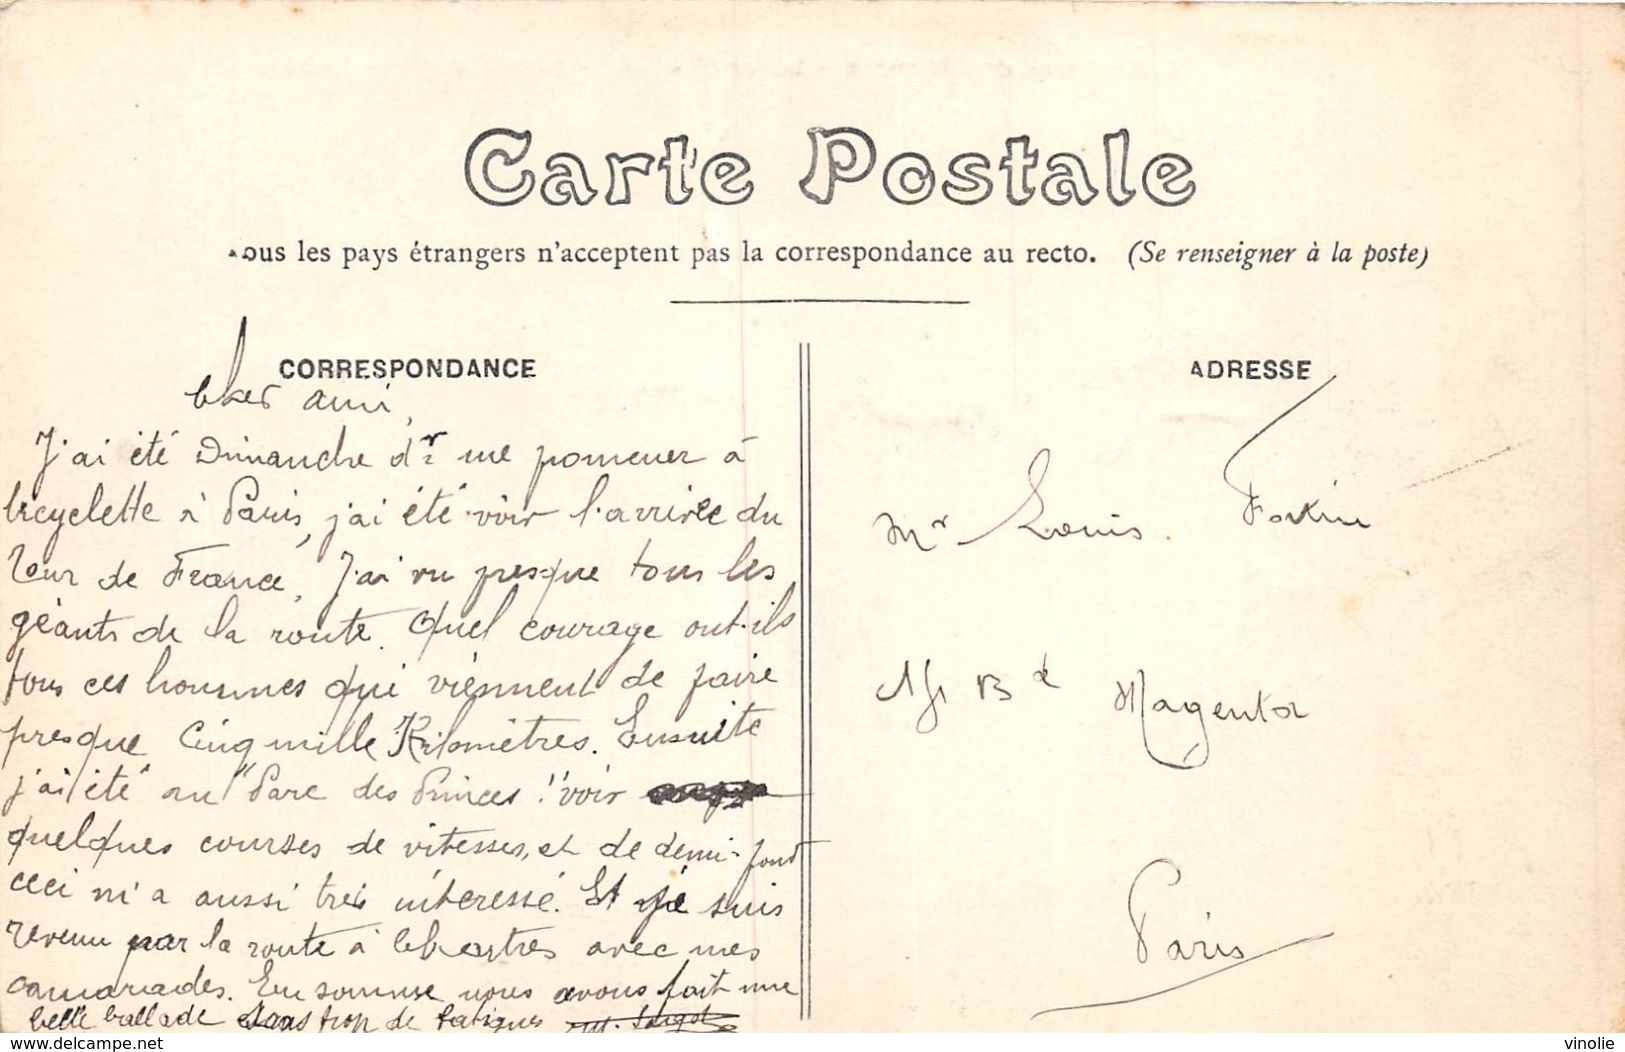 Carte Postale
ous les pays étrangers n'acceptent pas la correspondance au recto. (Se renseigner à la poste)
CORRESPONDANCE
Cher ami,
J'ai été Dimanche dr me pomener à
bicyclette à Paris, j'ai été voir l'arrivée du
Tour de France, J'ai vu presque tous les
géants de la route. Quel courage ont-ils
tous ces hommes qui viennent de faire
presque Cinq mille Kilomètres. Ensuite
j'ai été au "Parc des Princes" voir
quelques courses de vitesses, et de demi-fond
ceci m'a aussi très intéressé. Et je suis
revenu par la route à Chartres avec mes
camarades. En somme nous avons fait une
belle ballade sans trop de fatigues
ADRESSE
Mr Louis
Bd Magenta
Paris
delcampe.net
vinolie